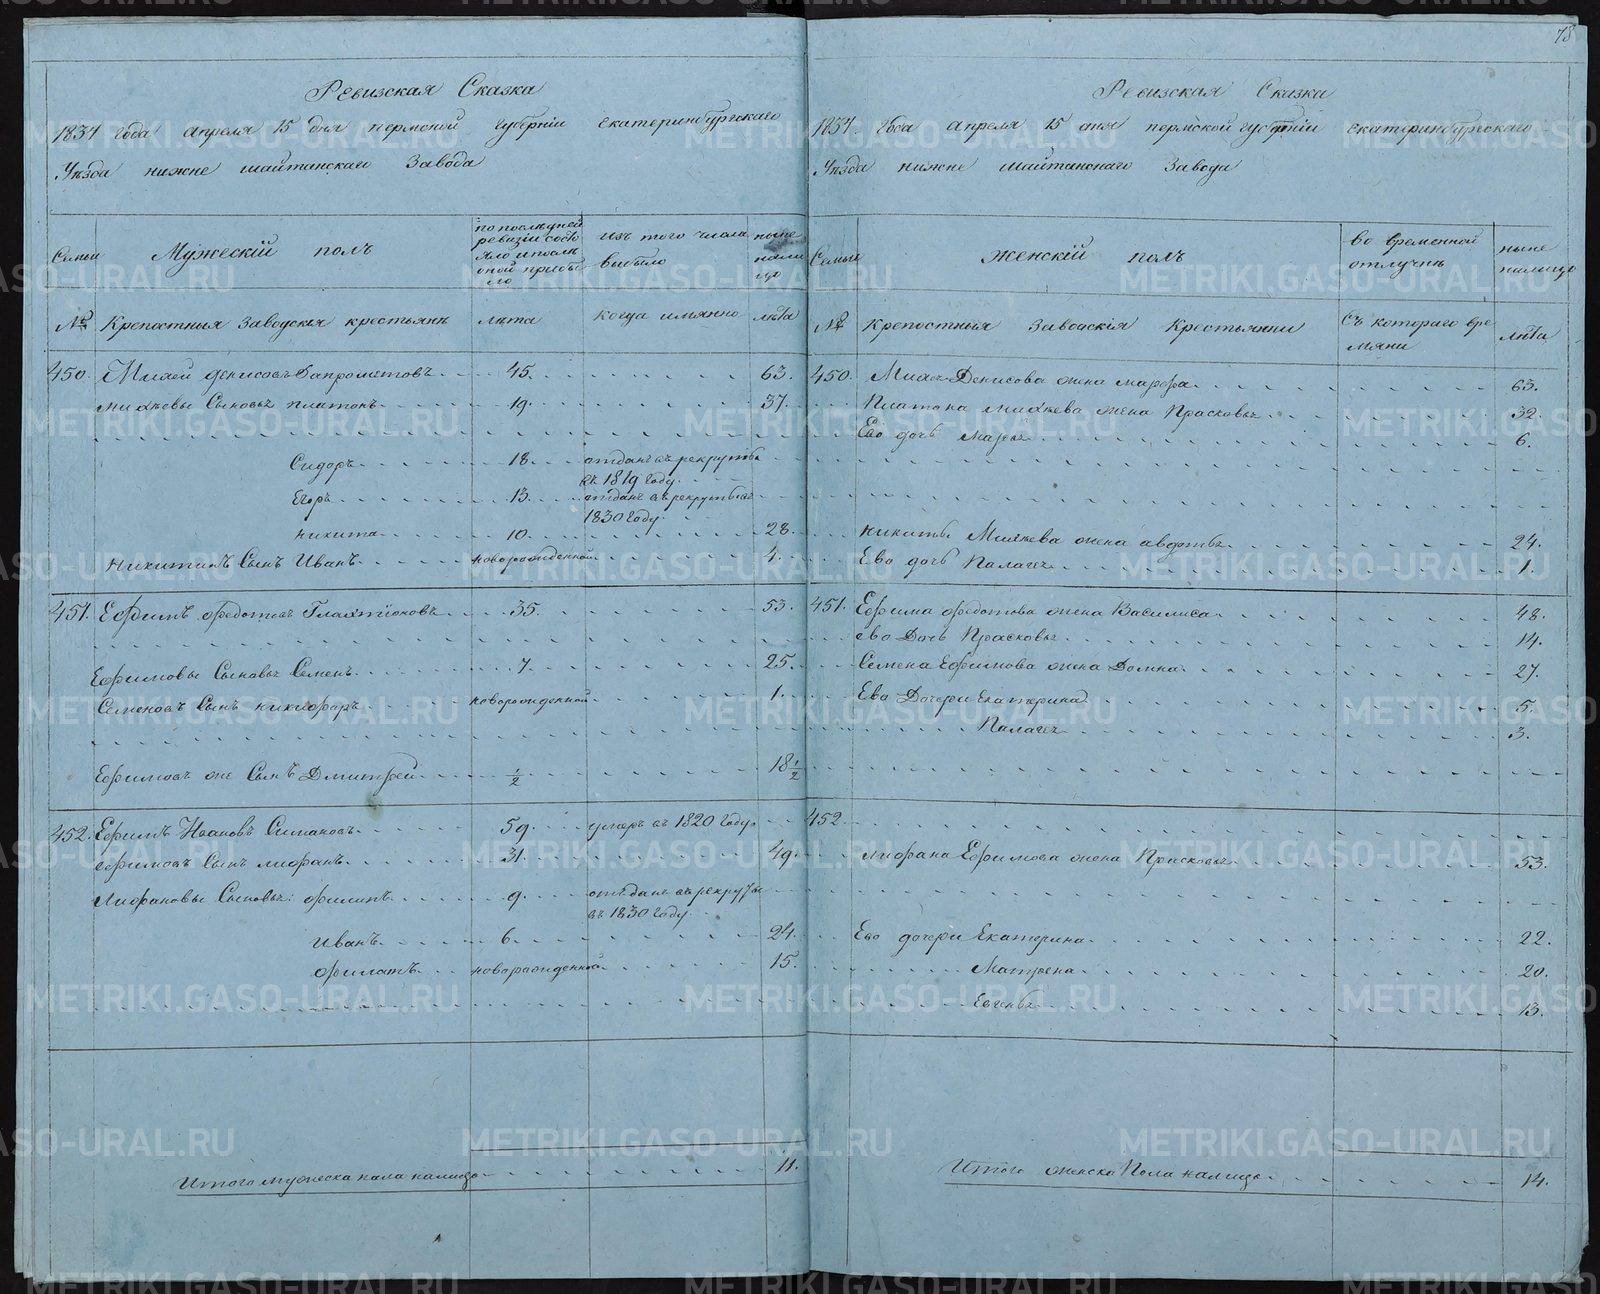 78
Ревизская Сказка
1834 года апреля 15 дня пермской губернiи екатеринбургскаго
Уѣзда нижне шайтанскаго Завода
Семьи
Мужескiй полъ
по последней ревизiи состо яло и после оной прибы ло
изъ того числа выбыло
ныне нали цо
№
Крепостныя Заводскiя крестьянъ
лѣта
когда имянно
лѣта
450. Михей денисовъ Запрометовъ 45. 63.
михѣевы Сыновья платонъ 19. 37.
Сидоръ 18. отданъ въ рекруты въ 1819 году
Егоръ 13. отданъ въ рекруты въ 1830 году
никита 10. 28.
никитинъ Сынъ Иванъ новорожденной 4.
451. Ефимъ федотовъ Галахтiоновъ 35. 53.
Ефимовы Сыновья Семенъ 7. 25.
Семеновъ Сынъ никифоръ новорожденной 1.
Ефимовъ же Сынъ Дмитрей ½ 18½
452. Ефимъ Ивановъ Симановъ 59. умеръ въ 1820 году
ефимовъ Сынъ лифанъ 31. 49.
Лифановы Сыновья: филипъ 9. отданъ въ рекруты въ 1830 году
Иванъ 6. 24.
филатъ новорожденной 15.
Итого мужеска пола налицо 11.
Ревизская Сказка
1834. года апреля 15 дня пермской губернiи екатеринбургскаго
Уѣзда нижне шайтанскаго Завода
Семьи
Женскiй полъ
во временной отлучкѣ
ныне налицо
№
Крепостныя Заводскiя Крестьянки
Съ котораго вре мяни
лѣта
450. Михея Денисова жена марфа 63.
Платона михѣева жена Прасковья 32.
Ево дочь марья 6.
никиты Михеева жена авдотья 24.
Ево дочь Палагея 1.
451. Ефима федотова жена Василиса 48.
ево Дочь Прасковья 14.
Семена Ефимова жена Домна 27.
Ево Дочери Екатерина 5.
Палагея 3.
452
лифана Ефимова жена Прасковья 53.
Ево дочери Екатерина 22.
Матрена 20.
Евгенья 13.
Итого женска Пола налицо 14.
METRIKI.GASO-URAL.RU